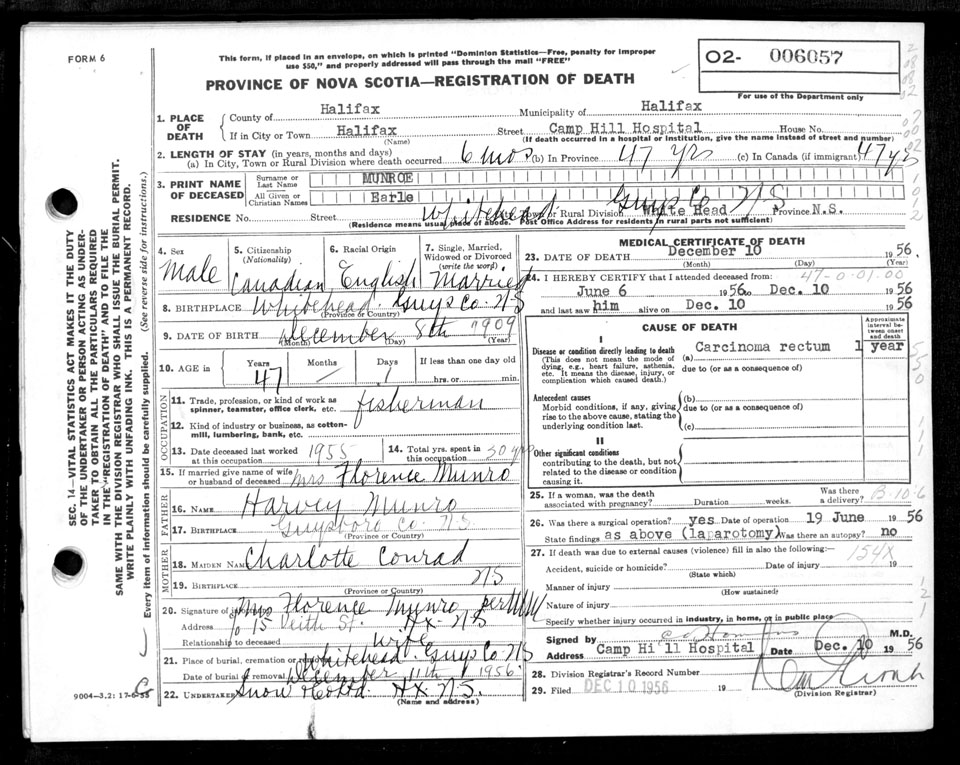 FORM 6
This form, if placed in an envelope, on which is printed "Dominion Statistics—Free, penalty for improper
use $50," and properly addressed will pass through the mail "FREE"
PROVINCE OF NOVA SCOTIA—REGISTRATION OF DEATH
O2- 006057
For use of the Department only
SEC. 14—VITAL STATISTICS ACT MAKES IT THE DUTY
OF THE UNDERTAKER OR PERSON ACTING AS UNDER-
TAKER TO OBTAIN ALL THE PARTICULARS REQUIRED
IN THE "REGISTRATION OF DEATH" AND TO FILE THE
SAME WITH THE DIVISION REGISTRAR WHO SHALL ISSUE THE BURIAL PERMIT.
WRITE PLAINLY WITH UNFADING INK. THIS IS A PERMANENT RECORD.
Every item of information should be carefully supplied. (See reverse side for instructions.)
1. PLACE OF DEATH
County of Halifax Municipality of Halifax
If in City or Town Halifax Street Camp Hill Hospital House No.
(Name) (If death occurred in a hospital or institution, give the name instead of street and number)
2. LENGTH OF STAY (in years, months and days)
(a) In City, Town or Rural Division where death occurred 6 mos (b) In Province 47 yrs (c) In Canada (if immigrant) 47 yrs
3. PRINT NAME OF DECEASED
Surname or Last Name MUNROE
All Given or Christian Names Earle
Guys Co N S
RESIDENCE No. Street Whitehead or Rural Division White Head Province N.S.
(Residence means usual place of abode. Post Office Address for residents in rural parts not sufficient)
4. Sex Male
5. Citizenship (Nationality) Canadian
6. Racial Origin English
7. Single, Married, Widowed or Divorced (write the word) Married
8. BIRTHPLACE Whitehead Guys Co. N S
(Province or Country)
9. DATE OF BIRTH December 8th 1909
(Month) (Day) (Year)
10. AGE in Years 47 Months — Days 1 If less than one day old
hrs. or min.
OCCUPATION
11. Trade, profession, or kind of work as
spinner, teamster, office clerk, etc. fisherman
12. Kind of industry or business, as cotton-
mill, lumbering, bank, etc.
13. Date deceased last worked at this occupation 1955
14. Total yrs. spent in this occupation 30 yrs
15. If married give name of wife
or husband of deceased Mrs Florence Munro
FATHER
16. NAME Harvey Munro
17. BIRTHPLACE Guysboro Co. N.S.
(Province or Country)
MOTHER
18. MAIDEN NAME Charlotte Conrad
19. BIRTHPLACE N S
(Province or Country)
20. Signature of Mrs Florence Munro per
Address 15 Veith St. Hx. N S
Relationship to deceased wife
21. Place of burial, cremation or removal Whitehead Guys Co. N S
Date of burial or removal December 11th 1956
22. UNDERTAKER Snow Co Ltd. Hx N.S.
(Name and address)
9004-3.2: 17-6-55
MEDICAL CERTIFICATE OF DEATH
23. DATE OF DEATH December 10 1956.
(Month) (Day) (Year)
24. I HEREBY CERTIFY that I attended deceased from: 47-0-01.00
June 6 1956 to Dec. 10 1956
and last saw him alive on Dec. 10 1956
CAUSE OF DEATH
Approximate interval between onset and death
I
Disease or condition directly leading to death
(This does not mean the mode of
dying, e.g., heart failure, asthenia,
etc. It means the disease, injury, or
complication which caused death.)
(a) Carcinoma rectum 1 year
due to (or as a consequence of)
Antecedent causes
Morbid conditions, if any, giving
rise to the above cause, stating the
underlying condition last.
(b)
due to (or as a consequence of)
(c)
II
Other significant conditions
contributing to the death, but not
related to the disease or condition
causing it.
25. If a woman, was the death
associated with pregnancy? Duration weeks. Was there a delivery?
26. Was there a surgical operation? yes Date of operation 19 June 1956
State findings as above (laparotomy) Was there an autopsy? no
27. If death was due to external causes (violence) fill in also the following:—
154X
Accident, suicide or homicide? Date of injury 19
(State which)
Manner of injury
(How sustained)
Nature of injury
Specify whether injury occurred in industry, in home, or in public place
Signed by M.D.
Address Camp Hill Hospital Date Dec. 10 1956
28. Division Registrar's Record Number
29. Filed DEC 10 1956 19
(Division Registrar)